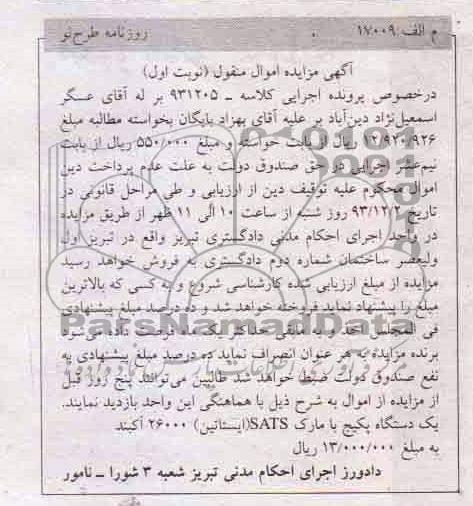 م الف: ۱۷۰۰۹ روزنامه طرح‌نو
آگهی مزایده اموال منقول (نوبت اول)
درخصوص پرونده اجرایی کلاسه ـ ۹۳۱۲۰۵ بر له آقای عسگر
اسمعیل‌نژاد دین‌آباد بر علیه آقای بهزاد بایگان بخواسته مطالبه مبلغ
۱۲/۹۲۰/۹۲۶ ریال از بابت خواسته و مبلغ ۵۵۰/۰۰۰ ریال از بابت
نیم‌عشر اجرایی در حق صندوق دولت به علت عدم پرداخت دین
اموال محکوم علیه توقیف دین از ارزیابی و طی مراحل قانونی در
تاریخ ۹۳/۱۲/۲ روز شنبه از ساعت ۱۰ الی ۱۱ ظهر از طریق مزایده
در واحد اجرای احکام مدنی دادگستری تبریز واقع در تبریز اول
ولیعصر ساختمان شماره دوم دادگستری به فروش خواهد رسید
مزایده از مبلغ ارزیابی شده کارشناسی شروع و به کسی که بالاترین
مبلغ را پیشنهاد نماید فروخته خواهد شد و ده درصد مبلغ پیشنهادی
فی المجلس اخذ و مابقی حداکثر یکماه فرصت داده می‌شود
برنده مزایده به هر عنوان انصراف نماید ده درصد مبلغ پیشنهادی به
نفع صندوق دولت ضبط خواهد شد طالبین می‌توانند پنج روز قبل
از مزایده از اموال به شرح ذیل با هماهنگی این واحد بازدید نمایند.
یک دستگاه پکیج با مارک SATS(ایستاتین) ۲۶۰۰۰ آکبند
به مبلغ ۱۳/۰۰۰/۰۰۰ ریال
دادورز اجرای احکام مدنی تبریز شعبه ۳ شورا ـ نامور
ParsNamadData